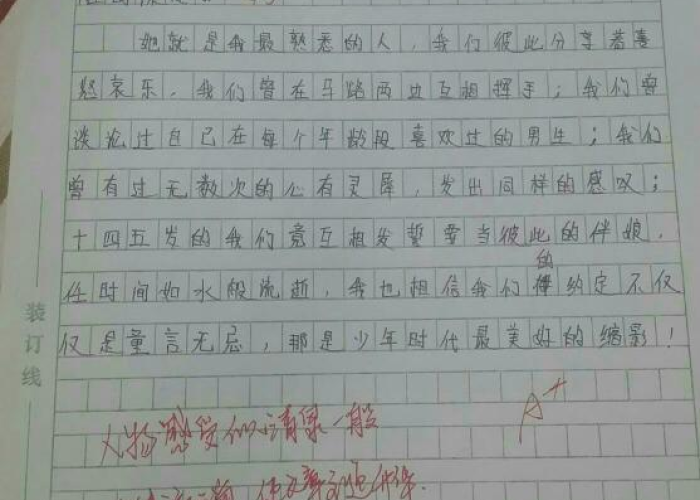 她就是我最熟悉的人，我们彼此分享着喜
怒哀乐，我们曾在马路两边互相挥手；我们曾
谈论过自己在每个年龄段喜欢过的男生；我们
曾有过无数次的心有灵犀，发出同样的感叹；
十四五岁的我们竟互相发誓要当彼此的伴娘，
任时间如水般流逝，我也相信我们的约定不仅
仅是童言无忌，那是少年时代最美好的缩影！
A+
人物感受似请果一般
装订线